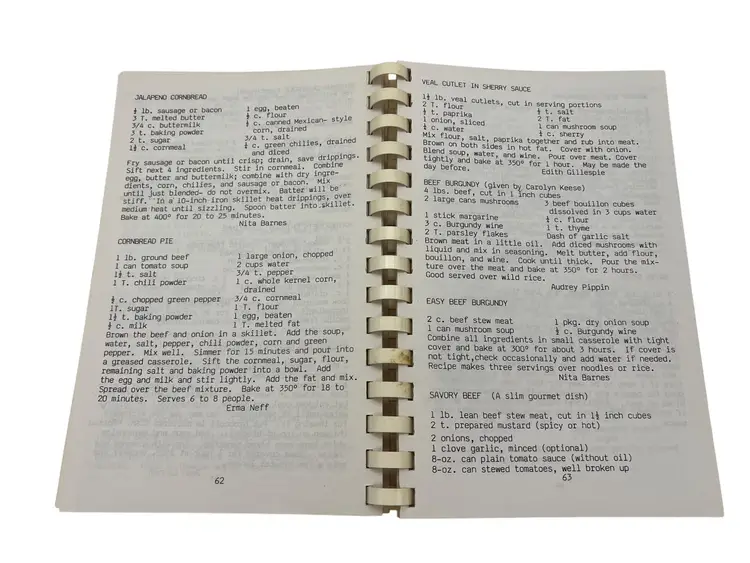 JALAPENO CORNBREAD
½ lb. sausage or bacon
3 T. melted butter
3/4 c. buttermilk
3 t. baking powder
2 t. sugar
1½ c. cornmeal
1 egg, beaten
½ c. flour
½ c. canned Mexican- style
corn, drained
3/4 t. salt
¼ c. green chilies, drained
and diced
Fry sausage or bacon until crisp; drain, save drippings.
Sift next 4 ingredients. Stir in cornmeal. Combine
egg, butter and buttermilk; combine with dry ingre-
dients, corn, chilies, and sausage or bacon. Mix
until just blended- do not overmix. Batter will be
stiff. In a 10-inch iron skillet heat drippings, over
medium heat until sizzling. Spoon batter into skillet.
Bake at 400° for 20 to 25 minutes.
Nita Barnes
CORNBREAD PIE
1 lb. ground beef
1 can tomato soup
1½ t. salt
1 T. chili powder
½ c. chopped green pepper
1T. sugar
1½ t. baking powder
½ c. milk
1 large onion, chopped
2 cups water
3/4 t. pepper
1 c. whole kernel corn,
drained
3/4 c. cornmeal
1 T. flour
1 egg, beaten
1 T. melted fat
Brown the beef and onion in a skillet. Add the soup,
water, salt, pepper, chili powder, corn and green
pepper. Mix well. Simmer for 15 minutes and pour into
a greased casserole. Sift the cornmeal, sugar, flour,
remaining salt and baking powder into a bowl. Add
the egg and milk and stir lightly. Add the fat and mix.
Spread over the beef mixture. Bake at 350° for 18 to
20 minutes. Serves 6 to 8 people.
Erma Neff
62
VEAL CUTLET IN SHERRY SAUCE
1½ lb. veal cutlets, cut in serving portions
2 T. flour
t. paprika
1 onion, sliced
c. water
t. salt
2 T. fat
1 can mushroom soup
c. sherry
Mix flour, salt, paprika together and rub into meat.
Brown on both sides in hot fat. Cover with onion.
Blend soup, water, and wine. Pour over meat. Cover
tightly and bake at 350° for 1 hour. May be made the
day before.
Edith Gillespie
BEEF BURGUNDY (given by Carolyn Keese)
4 lbs. beef, cut in 1 inch cubes
2 large cans mushrooms
1 stick margarine
3 c. Burgundy wine
2 T. parsley flakes
3 beef bouillon cubes
dissolved in 3 cups water
c. flour
1 t. thyme
Dash of garlic salt
Brown meat in a little oil. Add diced mushrooms with
liquid and mix in seasoning. Melt butter, add flour,
bouillon, and wine. Cook until thick. Pour the mix-
ture over the meat and bake at 350° for 2 hours.
Good served over wild rice.
Audrey Pippin
EASY BEEF BURGUNDY
2 c. beef stew meat
1 can mushroom soup
1 pkg. dry onion soup
c. Burgundy wine
Combine all ingredients in small casserole with tight
cover and bake at 300° for about 3 hours. If cover is
not tight,check occasionally and add water if needed.
Recipe makes three servings over noodles or rice.
Nita Barnes
SAVORY BEEF (A slim gourmet dish)
1 lb. lean beef stew meat, cut in 1½ inch cubes
2 t. prepared mustard (spicy or hot)
2 onions, chopped
1 clove garlic, minced (optional)
8-oz. can plain tomato sauce (without oil)
8-oz. can stewed tomatoes, well broken up
63